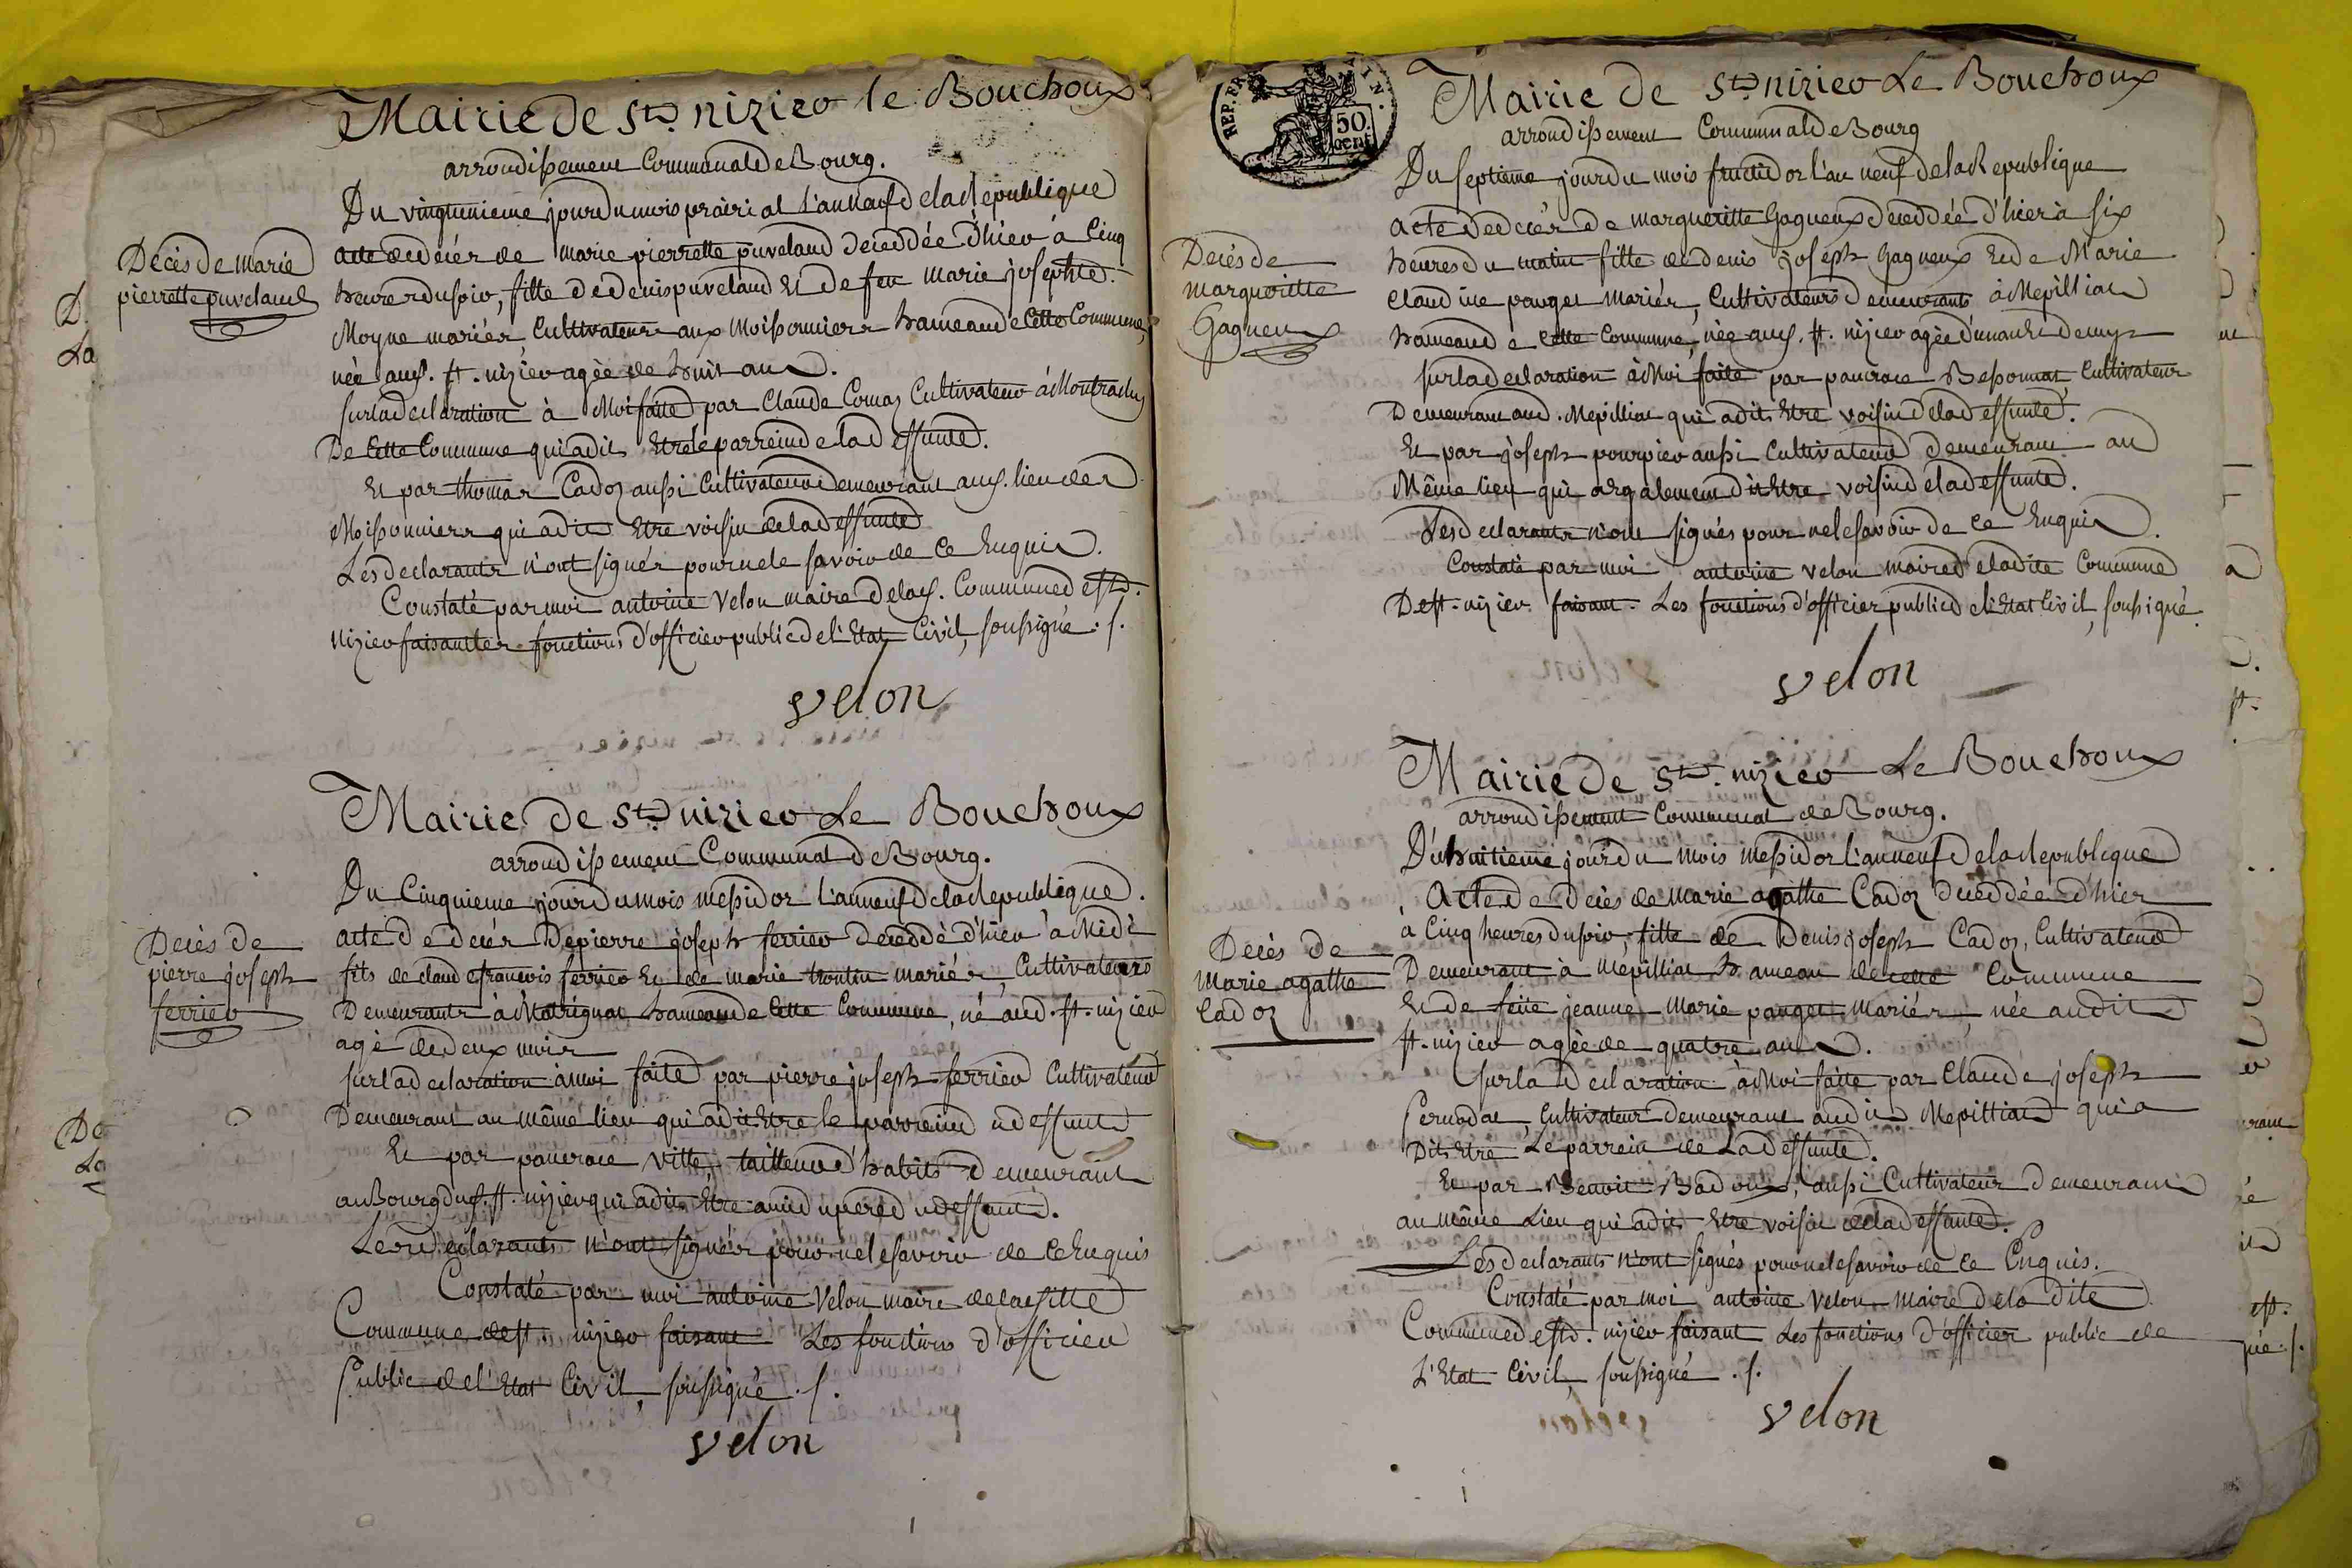 Mairie de St. nizier le Bouchoux
arrondissement Communal de Bourg.
Du vingtunieme jour du mois prairial L'an neuf de la Republique
Decès de Marie
pierrette puveland
acte de decés de Marie pierrette puveland decedée d'hier à Cinq
heures du soir, fille de denis puveland Et de feu Marie josephte
Moyne mariés, Cultivateurs aux Moissonniers hameau de Cette Commune,
née aud. st. nizier agée de huit ans.
sur la declaration à Moi faite par Claude Comas Cultivateur à
De Cette Commune qui a dit Etre le parrein de la deffunte.
Et par thomas Cadoz aussi Cultivateur demeurant aud. lieu des
Moissonniers qui a dit Etre voisin de la deffunte
Les declarants n'ont signés pour ne le savoir de Ce Enquis.
Constaté par moi antoine Velon maire de lad. Commune de st.
nizier faisant les fonctions d'officier public de l'Etat Civil, soussigné ./.
velon
Mairie de St. nizier Le Bouchoux
arrondissement Communal de Bourg.
Du Cinquieme jour du mois messidor L'an neuf de la Republique.
Decès de
pierre joseph
ferrier
acte de decés de pierre joseph ferrier decedé d'hier à Midi
fils de claude francois ferrier Et de marie trontin mariés, Cultivateurs
Demeurants à Matrignat hameau de Cette Commune, né aud. st. nizier
agé de deux mois
sur la declaration à moi faite par pierre joseph ferrier Cultivateur
Demeurant au même lieu qui a dit Etre le parrein du deffunt
Et par pancrace Ville, tailleur d'habits demeurant
au Bourg dud. st. nizier qui a dit Etre ami du pere du deffunt.
Les declarants n'ont signés pour ne le savoir de Ce Enquis
Constaté par moi antoine Velon maire de la ditte
Commune de st. nizier faisant Les fonctions d'officier
Public de l'Etat Civil, soussigné ./.
velon
REP. FR
50
cent
Mairie de St. nizier Le Bouchoux
arrondissement Communal de Bourg
Du septieme jour du mois fructidor l'an neuf de la Republique
Decés de
Margueritte
Gagneux
acte de decés de Margueritte Gagneux decedée d'hier à six
heures du matin fille de denis joseph Gagneux Et de Marie
Claudine panget Mariés, Cultivateurs demeurants à Mepilliat
hameau de Cette Commune, née aud. st. nizier agée d'un an Et demy
sur la declaration à Moi faite par pancrace Bessonnat Cultivateur
Demeurant aud. Mepilliat qui a dit Etre voisin de la deffunte.
Et par joseph pourpier aussi Cultivateur demeurant au
Même lieu qui a egalement dit Etre voisin de la deffunte.
Les declarants n'ont signés pour ne le savoir de Ce Enquis.
Constaté par moi antoine velon maire de la dite Commune
De st. nizier faisant Les fonctions d'officier public de l'Etat Civil, soussigné.
velon
Mairie de St. nizier Le Bouchoux
arrondissement Communal de Bourg.
Du huitieme jour du Mois messidor L'an neuf de la Republique
Decés de
Marie agathe
Cadoz
Acte de Decés de Marie agathe Cadoz decedée d'hier
à Cinq heures du soir, fille de Denis joseph Cadoz, Cultivateur
Demeurant à Mépilliat hameau de cette Commune
Et de feüe jeanne Marie panget Mariés, née audit
st. nizier agée de quatre ans.
sur la declaration à Moi faite par Claude joseph
Cultivateur demeurant audit Mepilliat qui a
Dit Etre Le parrein de La deffunte.
Et par Benoit Badoux, aussi Cultivateur Demeurant
au même Lieu qui a dit Etre voisin de la deffunte.
Les declarants n'ont signés pour ne le savoir de Ce Enquis.
Constaté par moi antoine Velon Maire de la dite
Commune de st. nizier faisant Les fonctions d'officier public de
L'Etat Civil, soussigné ./.
velon